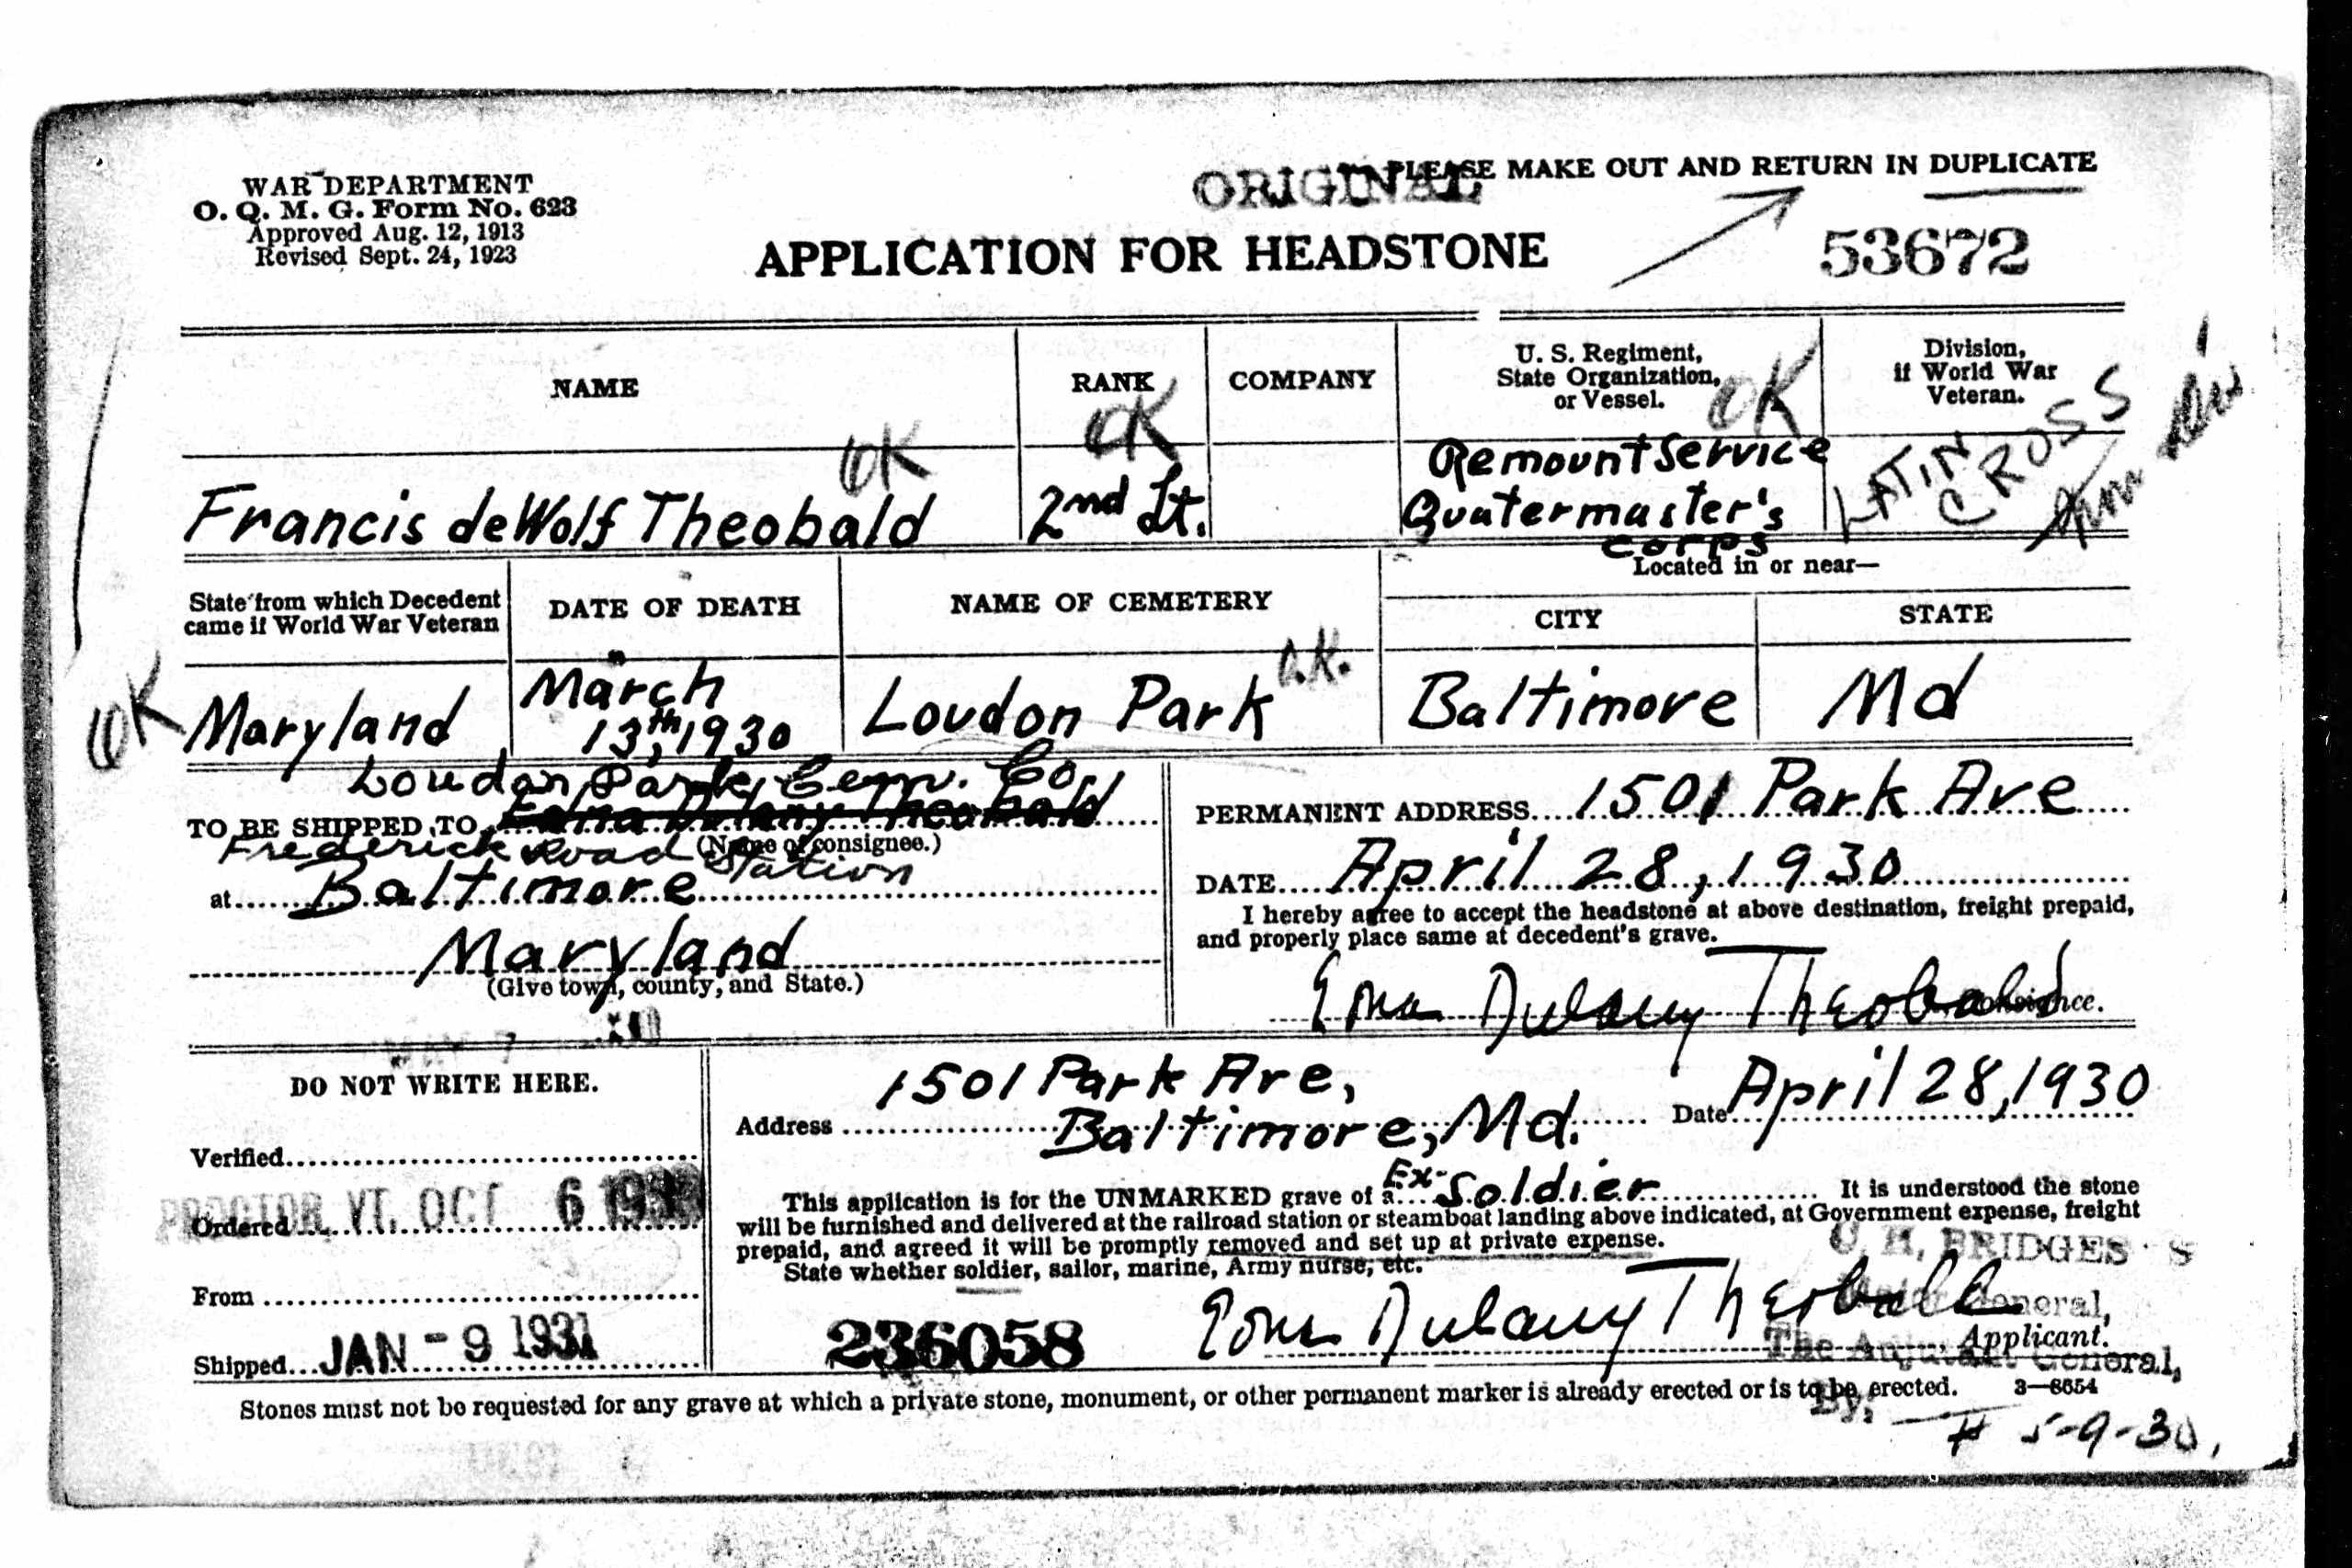 WAR DEPARTMENT
O. Q. M. G. Form No. 623
Approved Aug. 12, 1913
Revised Sept. 24, 1923
ORIGINAL
PLEASE MAKE OUT AND RETURN IN DUPLICATE
APPLICATION FOR HEADSTONE
53672
NAME
RANK
COMPANY
U. S. Regiment,
State Organization,
or Vessel.
Division,
if World War
Veteran.
OK
OK
OK
Francis deWolf Theobald
2nd Lt.
Remount Service
Quatermaster's
corps
LATIN
CROSS
State from which Decedent
came if World War Veteran
DATE OF DEATH
NAME OF CEMETERY
Located in or near—
CITY
STATE
OK
Maryland
March
13th, 1930
Loudon Park
O.K.
Baltimore
Md
Loudon Park Cem. Co.
TO BE SHIPPED TO Edna Dulany Theobald
(Name of consignee.)
Frederick Road Station
at Baltimore
Maryland
(Give town, county, and State.)
PERMANENT ADDRESS 1501 Park Ave
DATE April 28, 1930
I hereby agree to accept the headstone at above destination, freight prepaid,
and properly place same at decedent's grave.
Edna Dulany Theobald
Consignee.
DO NOT WRITE HERE.
Verified
Ordered
PROCTOR VT. OCT 6
From
Shipped JAN - 9 1931
1501 Park Ave,
Address Baltimore, Md.
Date April 28, 1930
This application is for the UNMARKED grave of a Ex-Soldier It is understood the stone
will be furnished and delivered at the railroad station or steamboat landing above indicated, at Government expense, freight
prepaid, and agreed it will be promptly removed and set up at private expense.
State whether soldier, sailor, marine, Army nurse, etc.
C. H. BRIDGES
Major General,
The Adjutant General,
By:
236058
Edna Dulany Theobald
Applicant.
Stones must not be requested for any grave at which a private stone, monument, or other permanent marker is already erected or is to be erected.
3—8654
5-9-30